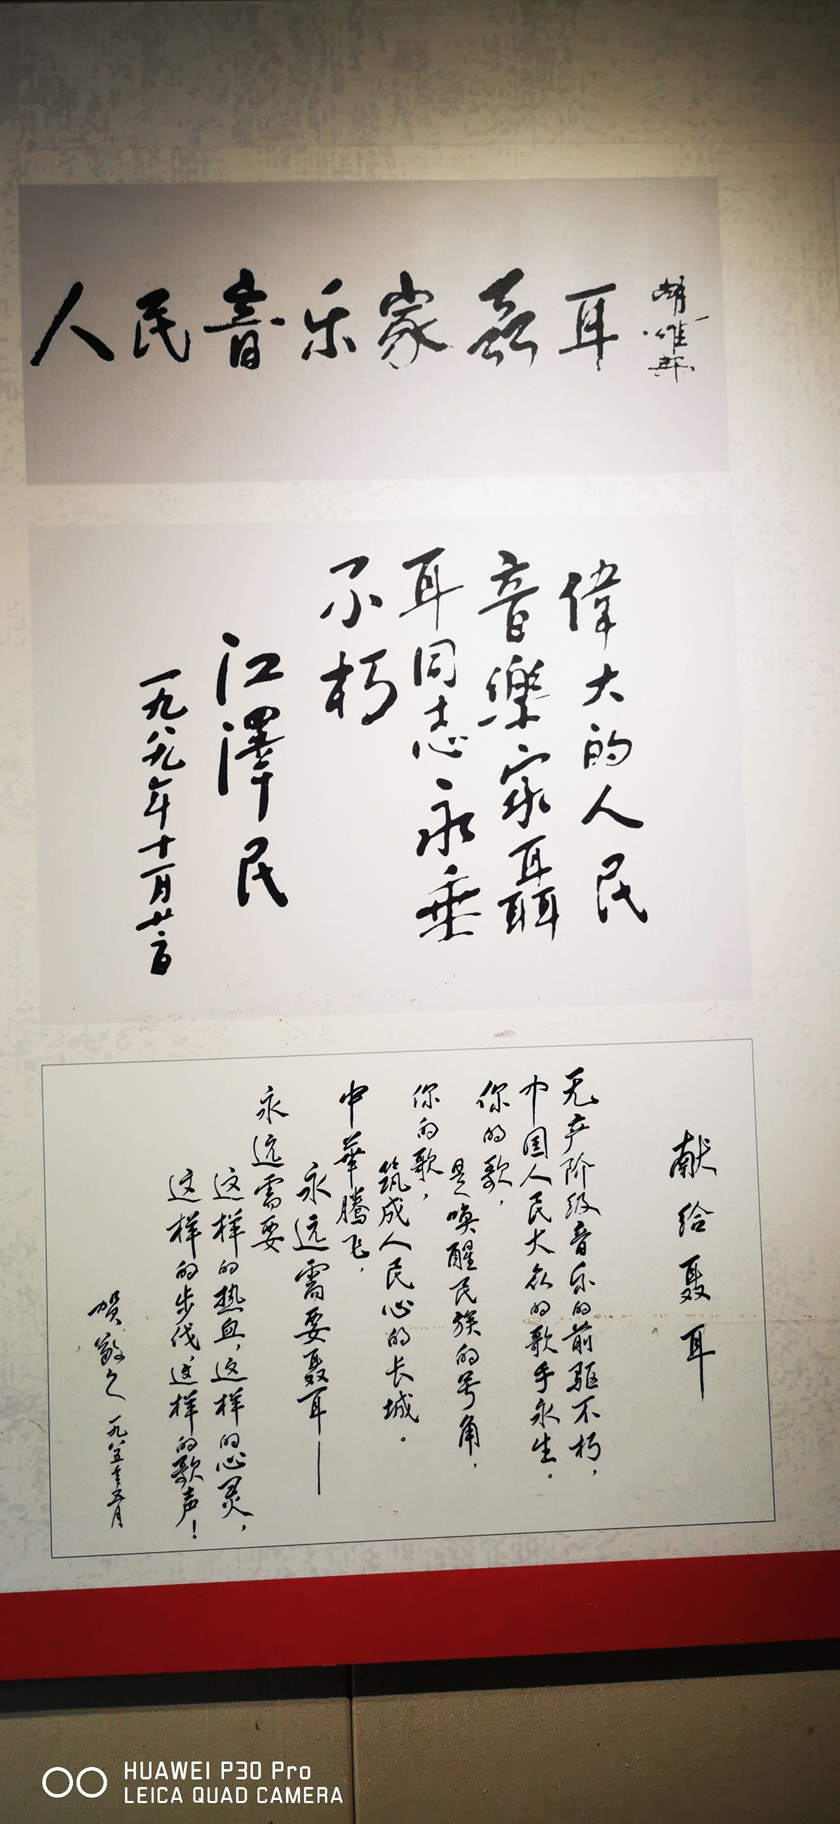 人民音乐家聂耳
胡耀邦
偉大的人民
音樂家聶
耳同志永垂
不朽
江澤民
一九八九年十一月廿二日
献给聂耳
无产阶级音乐的前驱不朽，
中国人民大众的歌手永生。
你的歌，
是唤醒民族的号角，
你的歌，
筑成人民心的长城。
中華腾飞，
永远需要聂耳——
永远需要
这样的热血，这样的心灵，
这样的步伐，这样的歌声！
贺敬之 一九八五年五月
HUAWEI P30 Pro
LEICA QUAD CAMERA